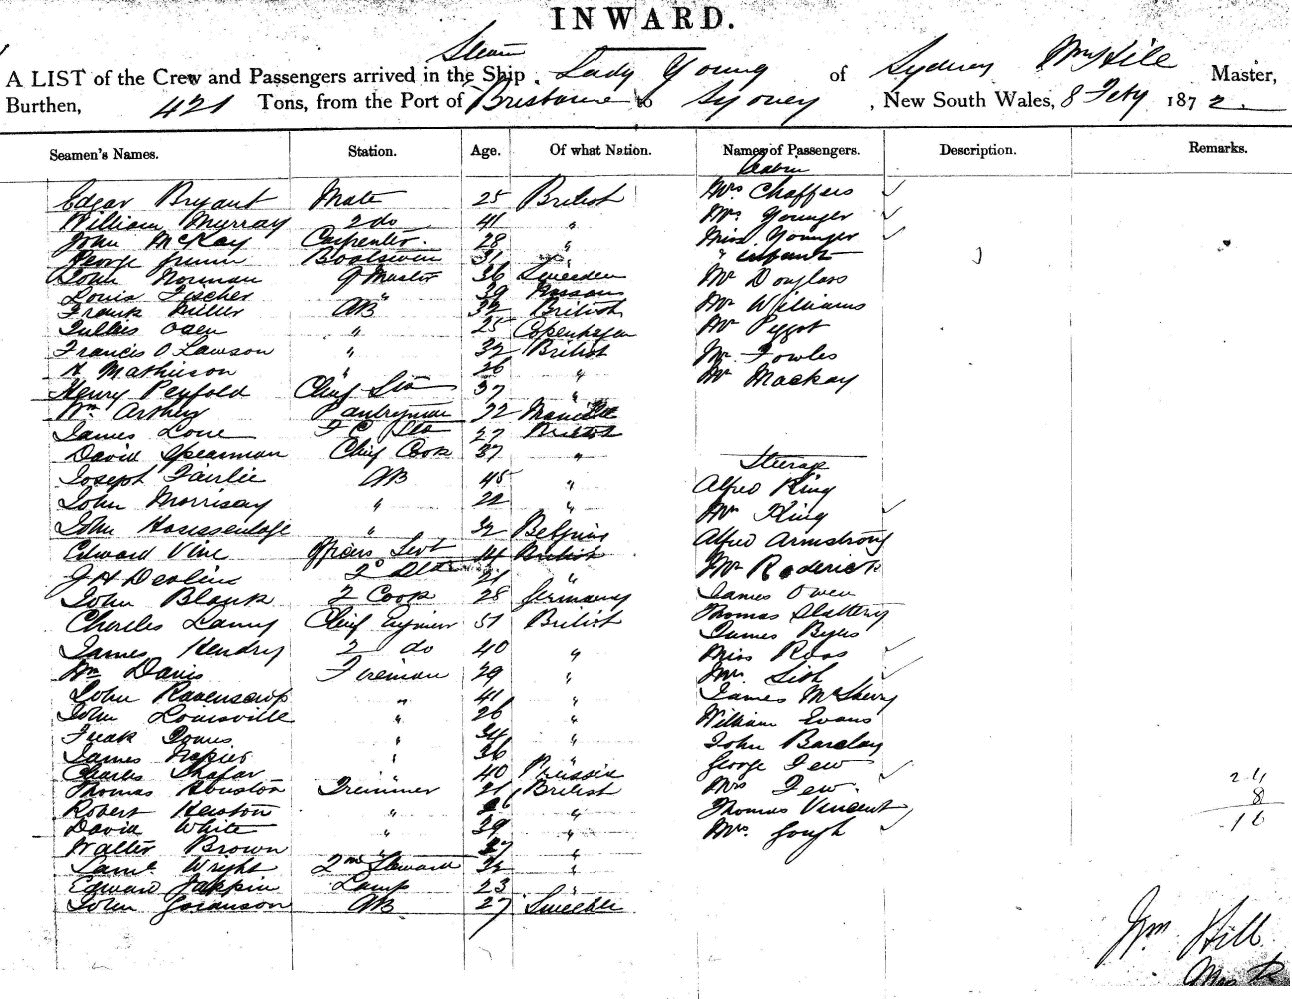 INWARD.
Steam
A LIST of the Crew and Passengers arrived in the Ship Lady Young of Sydney Wm Hill Master,
Burthen, 421 Tons, from the Port of Brisbane to Sydney, New South Wales, 8 Feby 1872.
Seamen's Names. Station. Age. Of what Nation. Names of Passengers. Description. Remarks.
Cabin
Edgar Bryant Mate 25 British Mrs Chaffers
William Murray 2 do 41 " Mrs Younger
John McKay Carpenter 28 " Miss Younger
George 31 " infant
John Norman 36 Sweeden Mr Douglass
Louis Fischer " 39
Frank Miller AB 32 British Mr Williams
Olsen " 25 Copenhagen Mr Pyggot
Francis O Lawson " 32 British Mr Fowles
H Mathieson " 26 " Mr Mackay
Henry Penfold Chief 37 "
Wm Arthur Pantryman 22
James Love 27 British
David Spearman Chief Cook 37 "
Steerage
Joseph Fairlie AB 45 " Alfred King
John Morrisay " 22 " Mrs King
John " 32 Belgium Alfred Armstrong
Edward Vine 14 British Mr Roderick
J H Devlin 2d 21 "
John Blank 2 Cook 28 Germany James Owen
Charles Lamy Chief Engineer 51 British Thomas Slattery
James Byles
James Hendry 2 do 40 " Miss Ross
Wm Davis Fireman 29 "
John Ravenscrop " 41 " James McSherry
John Louisville " 26 " William Evans
Jones " 34 " John Barclay
James Napier " 36 " George Few
Charles Shafar " 40 Prussia Mrs Few
Thomas Houston Trimmer 21 British Thomas Vincent
Robert Heaston " 26 " Mrs Gough
David White " 39 "
Walter Brown " 27 "
Saml Wright 2nd Steward 32 "
Edward Jappin Lamp 23 "
John Goranson AB 27
24
8
16
Wm Hill
Master